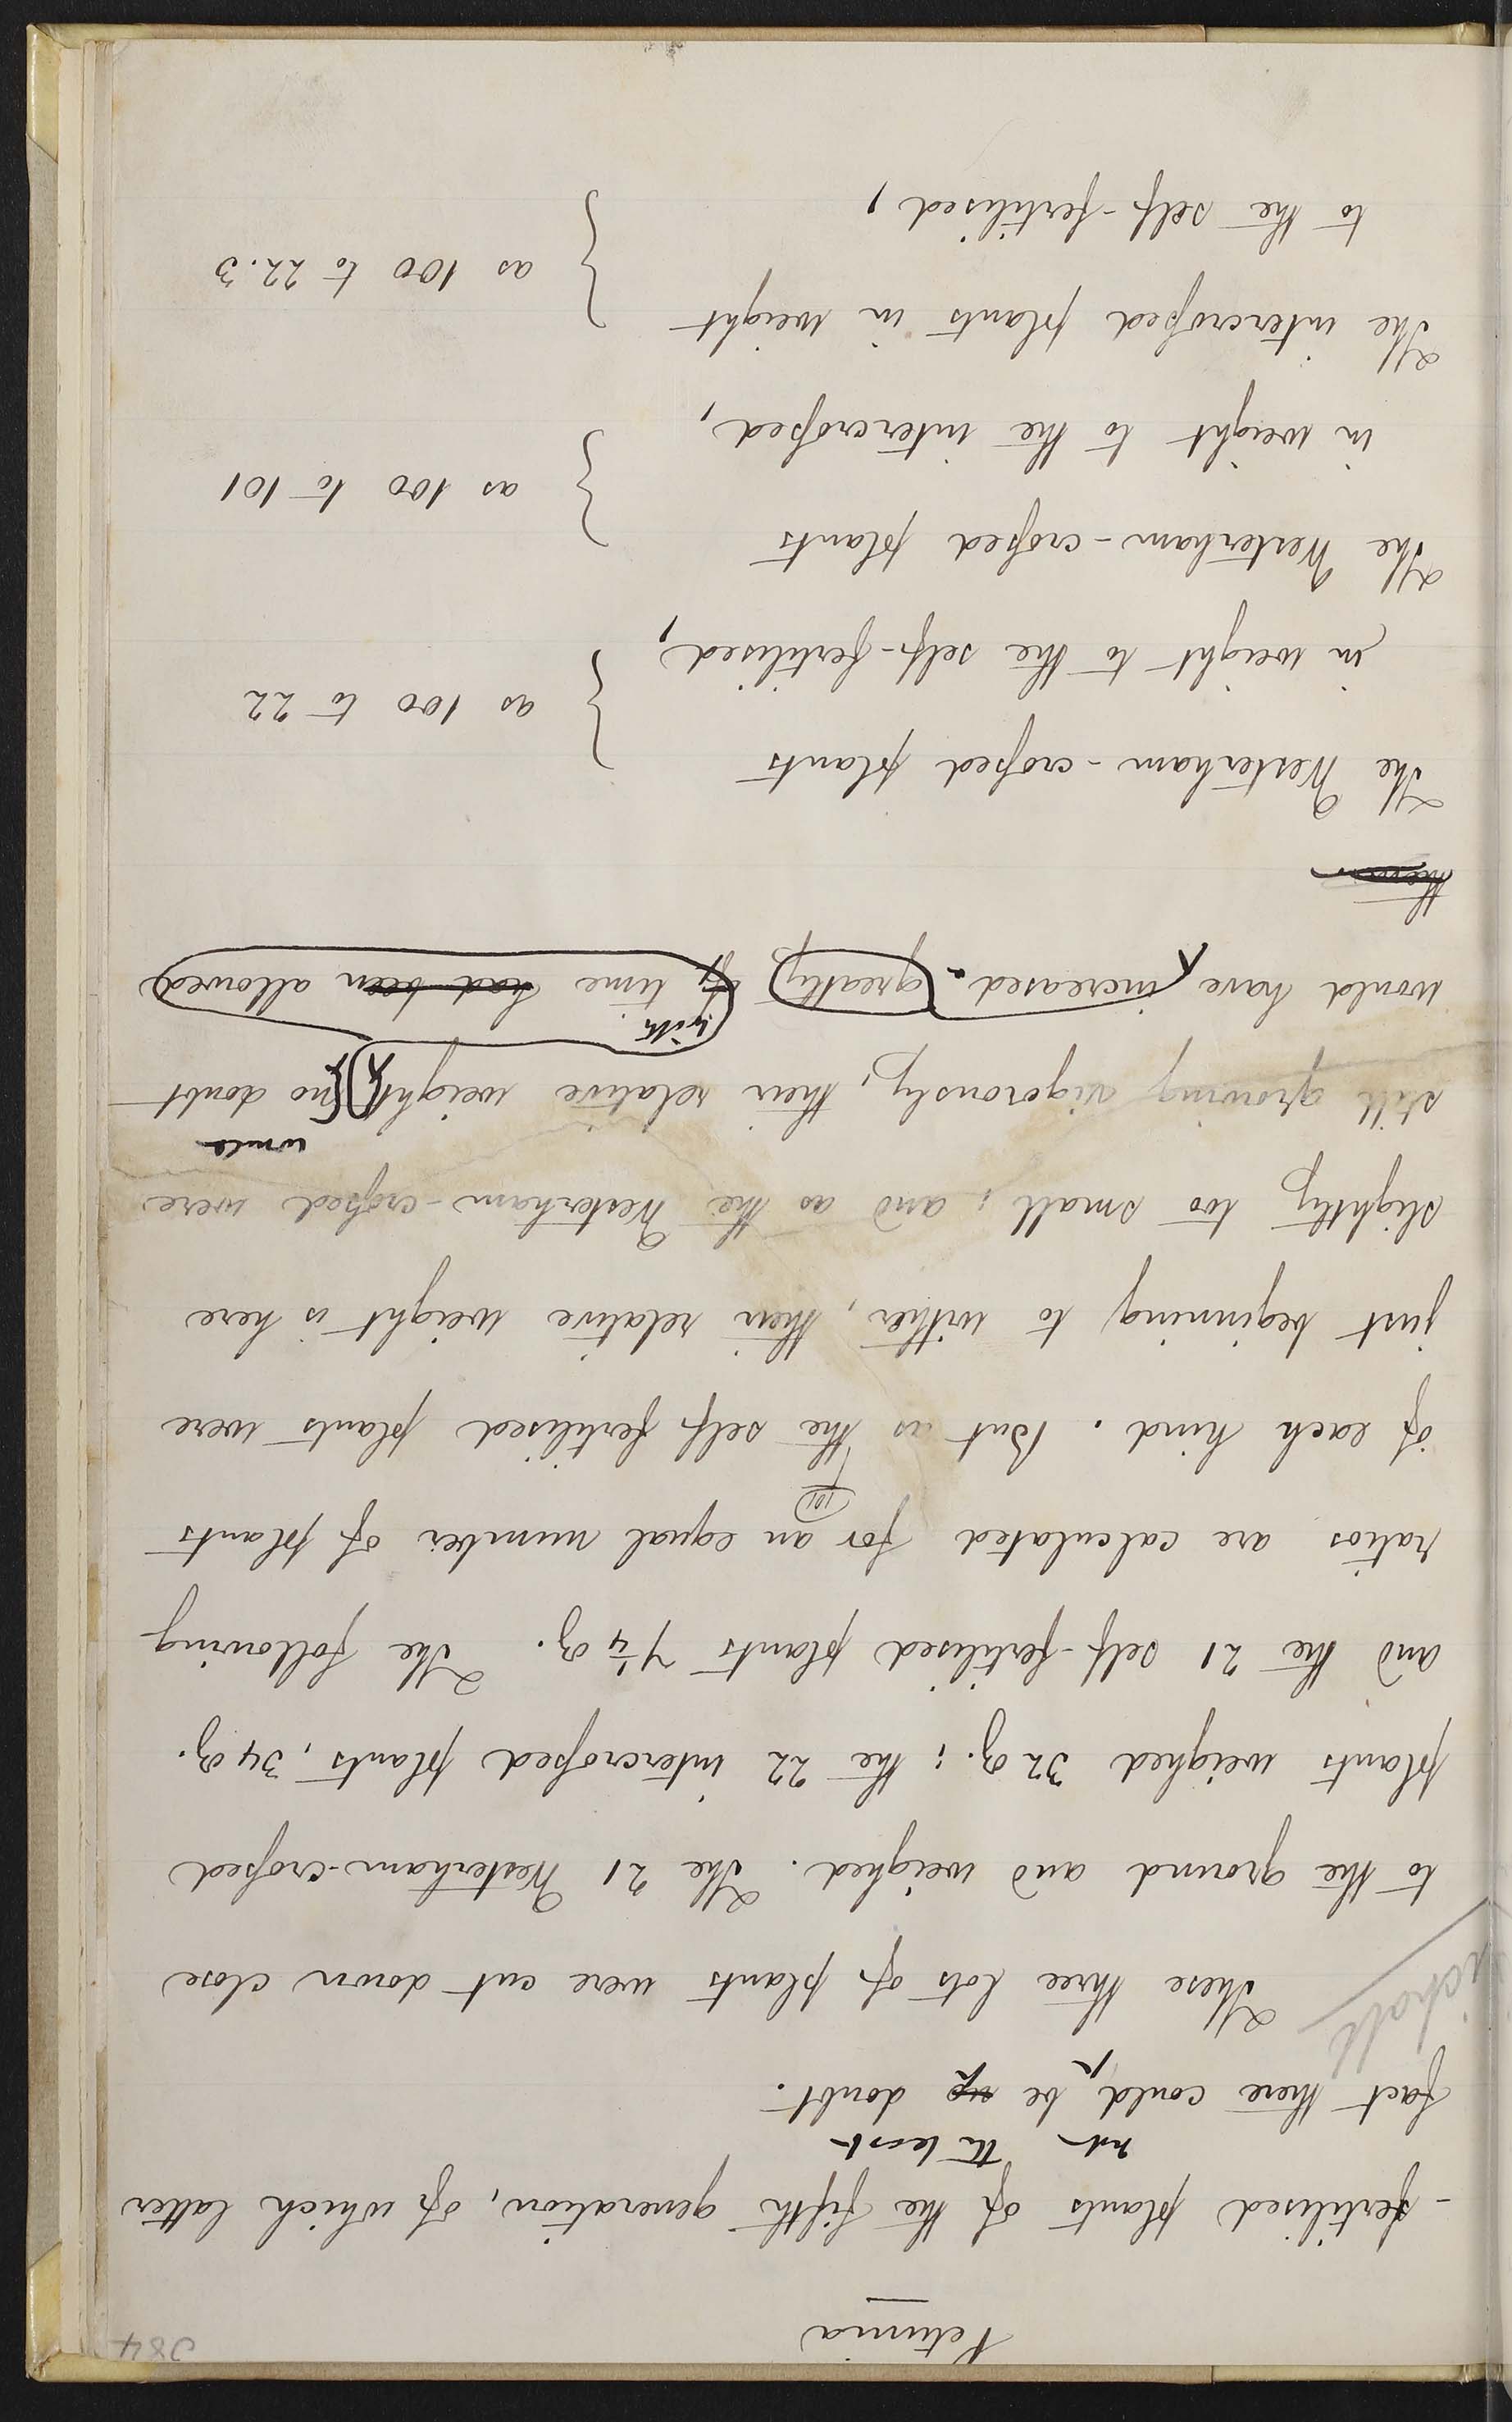 384
Petunia
-fertilised plants of the fifth generation, of which latter
not the least
fact there could be no doubt.
These three lots of plants were cut down close
to the ground and weighed. The 21 Westerham-crossed
plants weighed 32 oz.; the 22 intercrossed plants, 34 oz.
and the 21 self-fertilised plants 7 1/4 oz. The following
ratios are calculated for an equal number of plants
101
of each kind. But as the self fertilised plants were
just beginning to wither, their relative weight is here
slightly too small; and as the Westerham-crossed were
would
still growing vigorously, their relative weight no doubt
with
would have increased greatly if time had been allowed
them.
The Westerham-crossed plants
in weight to the self-fertilised, } as 100 to 22
The Westerham-crossed plants
in weight to the intercrossed, } as 100 to 101
The intercrossed plants in weight
to the self-fertilised, } as 100 to 22.3